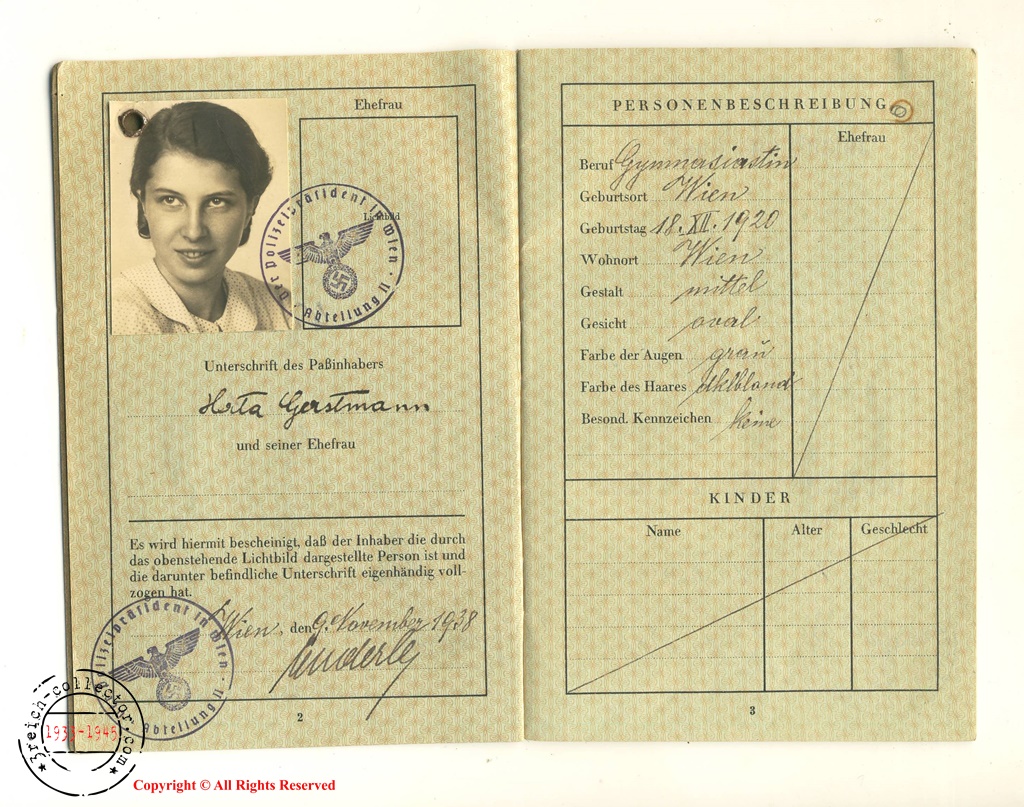 Ehefrau
Lichtbild
Der Polizeipräsident in Wien
Abteilung II
Unterschrift des Paßinhabers
Herta Gerstmann
und seiner Ehefrau
Es wird hiermit bescheinigt, daß der Inhaber die durch
das obenstehende Lichtbild dargestellte Person ist und
die darunter befindliche Unterschrift eigenhändig voll-
zogen hat.
Wien, den 9. November 1938
Polizeipräsident in Wien
Abteilung II
2
PERSONENBESCHREIBUNG
Ehefrau
Beruf Gymnasiastin
Geburtsort Wien
Geburtstag 18. XII. 1920
Wohnort Wien
Gestalt mittel
Gesicht oval
Farbe der Augen grau
Farbe des Haares dklblond
Besond. Kennzeichen keine
KINDER
Name Alter Geschlecht
3
3reich-collector.com
1933-1945
Copyright © All Rights Reserved